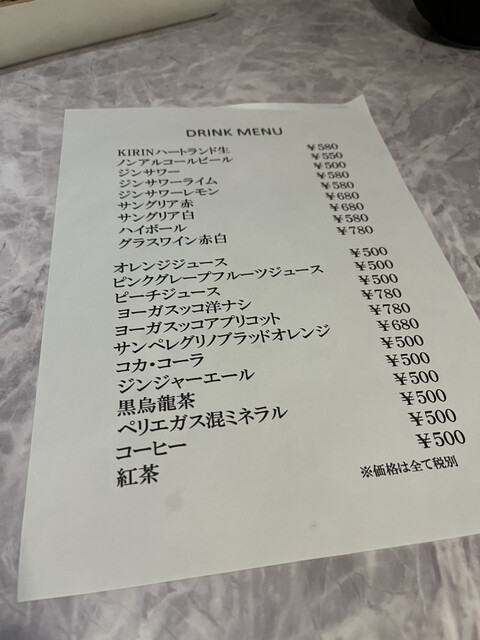 DRINK MENU
KIRINハートランド生 ¥580
ノンアルコールビール ¥550
ジンサワー ¥500
ジンサワーライム ¥580
ジンサワーレモン ¥580
サングリア赤 ¥680
サングリア白 ¥680
ハイボール ¥580
グラスワイン赤白 ¥780
オレンジジュース ¥500
ピンクグレープフルーツジュース ¥500
ピーチジュース ¥500
ヨーガスッコ洋ナシ ¥780
ヨーガスッコアプリコット ¥780
サンペレグリノブラッドオレンジ ¥680
コカ・コーラ ¥500
ジンジャーエール ¥500
黒烏龍茶 ¥500
ペリエガス混ミネラル ¥500
コーヒー ¥500
紅茶 ¥500
※価格は全て税別